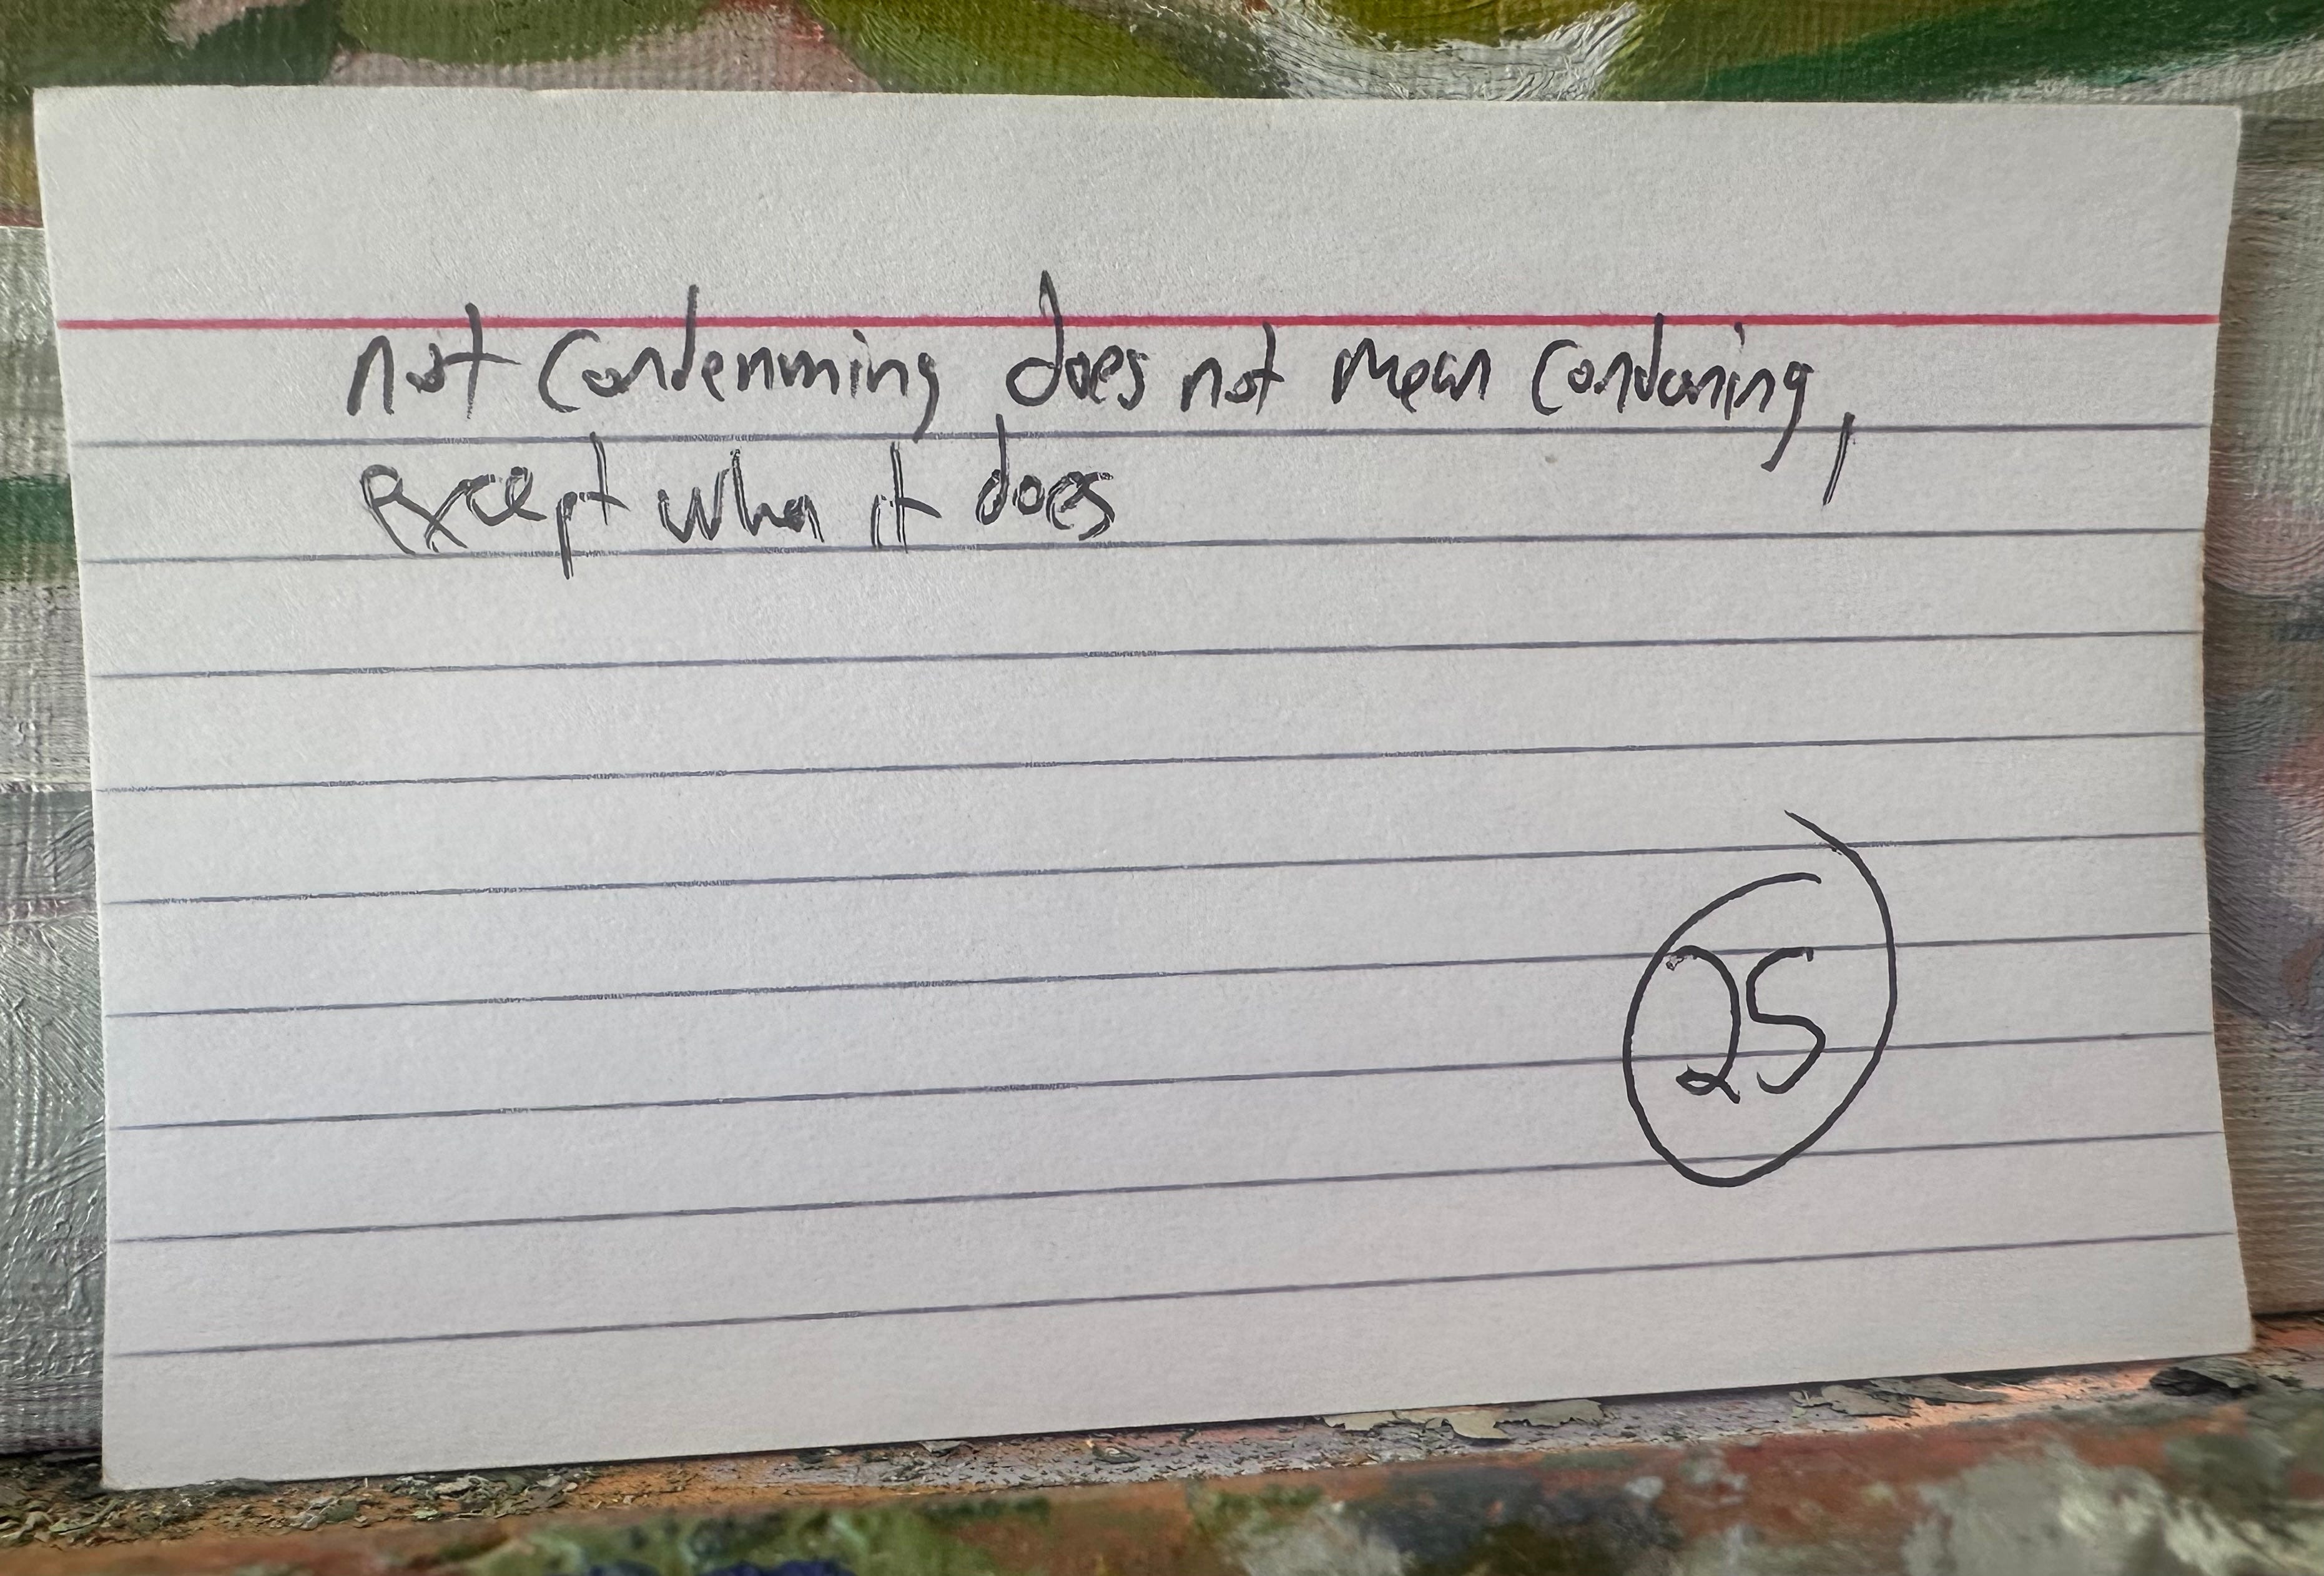 not condemming does not mean condoning,
except when it does
25